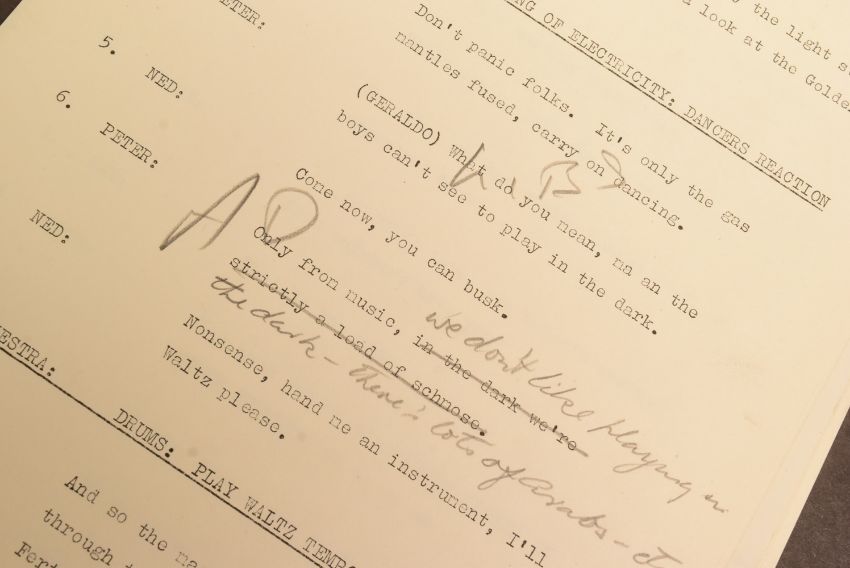 the light s
a look at the Golde
NG OF ELECTRICITY: DANCERS REACTION
ETER:
Don't panic folks. It's only the gas
mantles fused, carry on dancing.
5.
NED:
(GERALDO) What do you mean, ma an the
boys can't see to play in the dark.
6.
PETER:
Come now, you can busk.
A D
NED:
Only from music, in the dark we're
strictly a load of schnose.
we don't like playing in
the dark - there's lots of Arabs -
Nonsense, hand me an instrument, I'll
Waltz please.
ESTRA:
DRUMS: PLAY WALTZ TEMPO
And so the na
through t
Fert